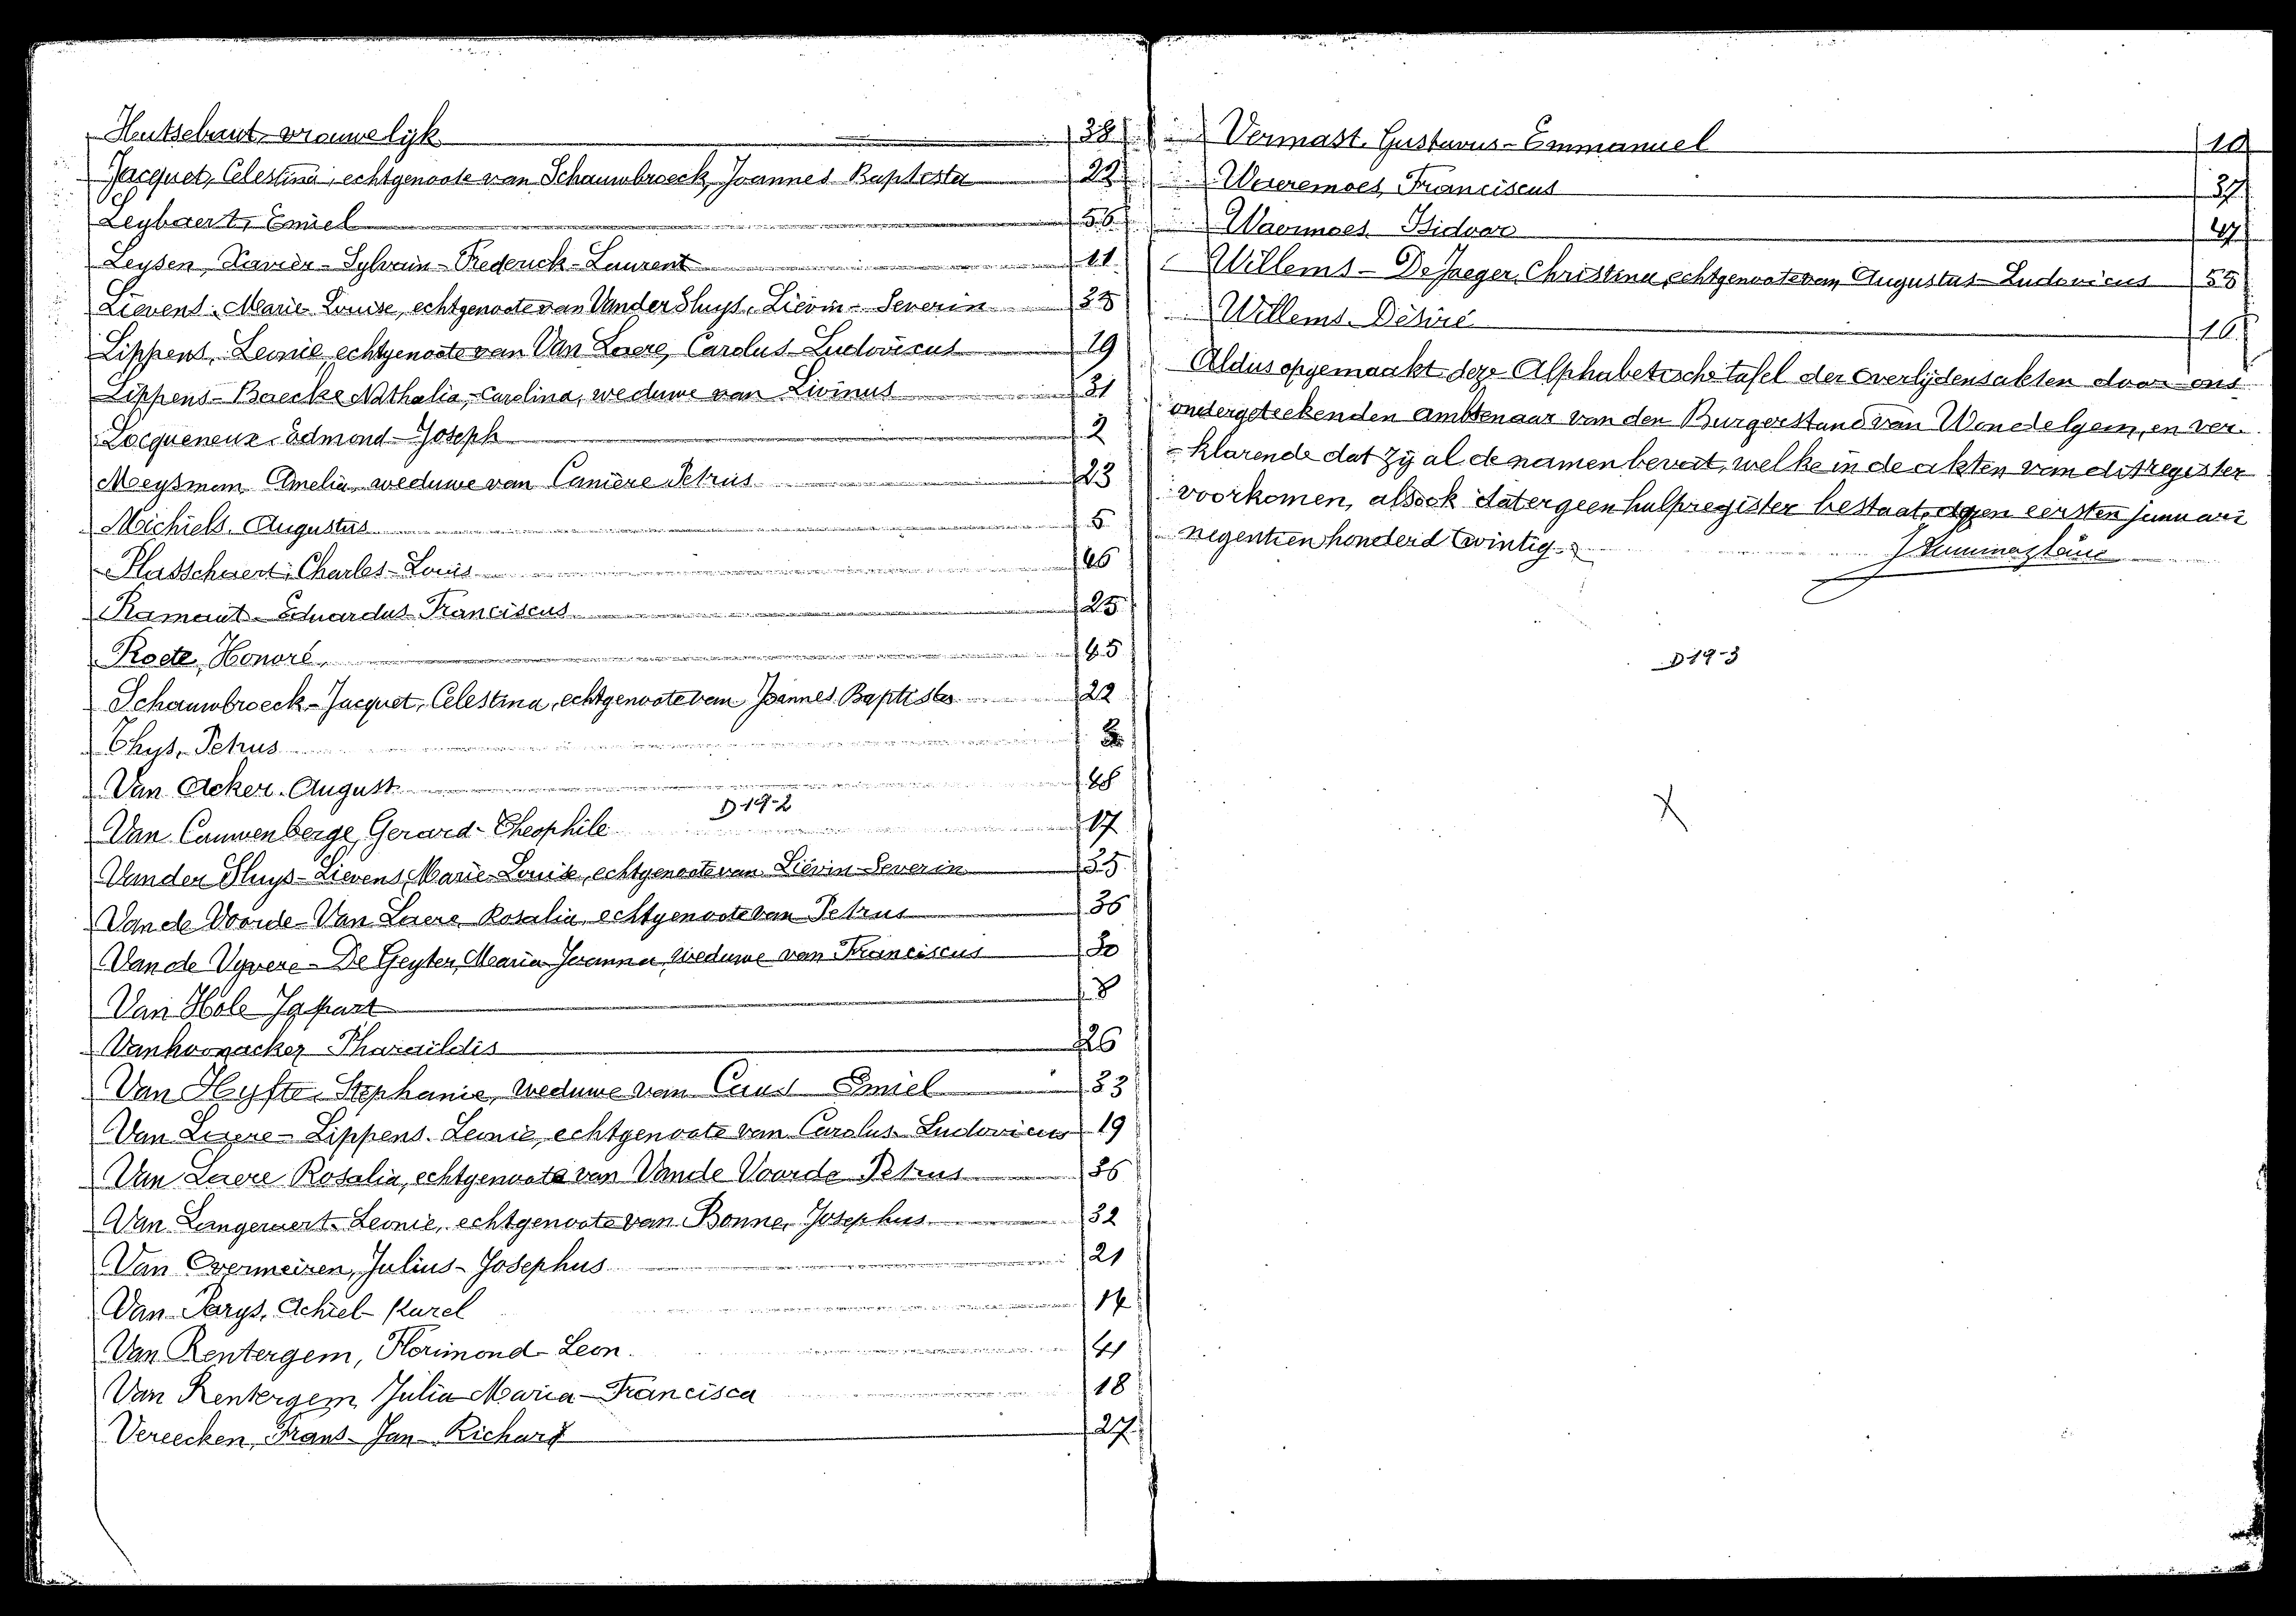 Hutsebaut vrouwelijk 38
Jacquet, Celestina, echtgenoote van Schauwbroeck, Joannes Baptista 22
Leybaert, Emiel 56
Leysen, Xavier-Sylvain-Frederick-Laurent 11
Lievens, Marie Louise, echtgenoote van Vander Sluys, Liévin-Severin 35
Lippens, Leonie, echtgenoote van Van Laere, Carolus-Ludovicus 19
Lippens-Baecke Nathalia-Carolina, weduwe van Livinus 31
Locqueneux Edmond-Joseph 2
Moeysman Amelia, weduwe van Canière Petrus 23
Michiels, Augustus 5
Plasschaert, Charles-Louis 46
Ramaut-Eduardus Franciscus 25
Roete, Honoré 45
Schauwbroeck-Jacquet, Celestina, echtgenoote van Joannes Baptista 22
Thys, Petrus
Van Acker, August 48
D 19-2
Van Cauwenberge, Gerard-Theophile 17
Vander Sluys-Lievens, Marie-Louise, echtgenoote van Liévin-Severin 35
Van de Voorde-Van Laere, Rosalia, echtgenoote van Petrus 36
Van de Vyvere-De Geyter, Maria Joanna, weduwe van Franciscus 30
Van Hole 8
Vanhoonacker Pharaildis 26
Van Hyfte, Stephanie, weduwe van Emiel 33
Van Laere-Lippens, Leonie, echtgenoote van Carolus-Ludovicus 19
Van Laere Rosalia, echtgenoote van Van de Voorde Petrus 36
Van Langeraert, Leonie, echtgenoote van Bonne, Josephus 32
Van Overmeiren, Julius-Josephus 21
Van Parys, Achiel-Karel 14
Van Rentergem, Florimond-Leon 41
Van Rentergem Julia-Maria-Francisca 18
Vereecken, Frans-Jan-Richard 27
Vermast, Gustavus-Emmanuel 10
Waeremoes, Franciscus 37
Waermoes Isidoor 47
Willems-De Jaeger, Christina, echtgenoote van Augustus-Ludovicus 55
Willems, Désiré 16
Aldus opgemaakt deze Alphabetische tafel der overlijdensakten door ons
ondergeteekenden ambtenaar van den Burgerstand van Wondelgem, en ver-
-klarende dat zy al de namen bevat, welke in de akten van dit register
voorkomen, alsook dat er geen hulpregister bestaat, den eersten januari
negentien honderd twintig.
D 19-3